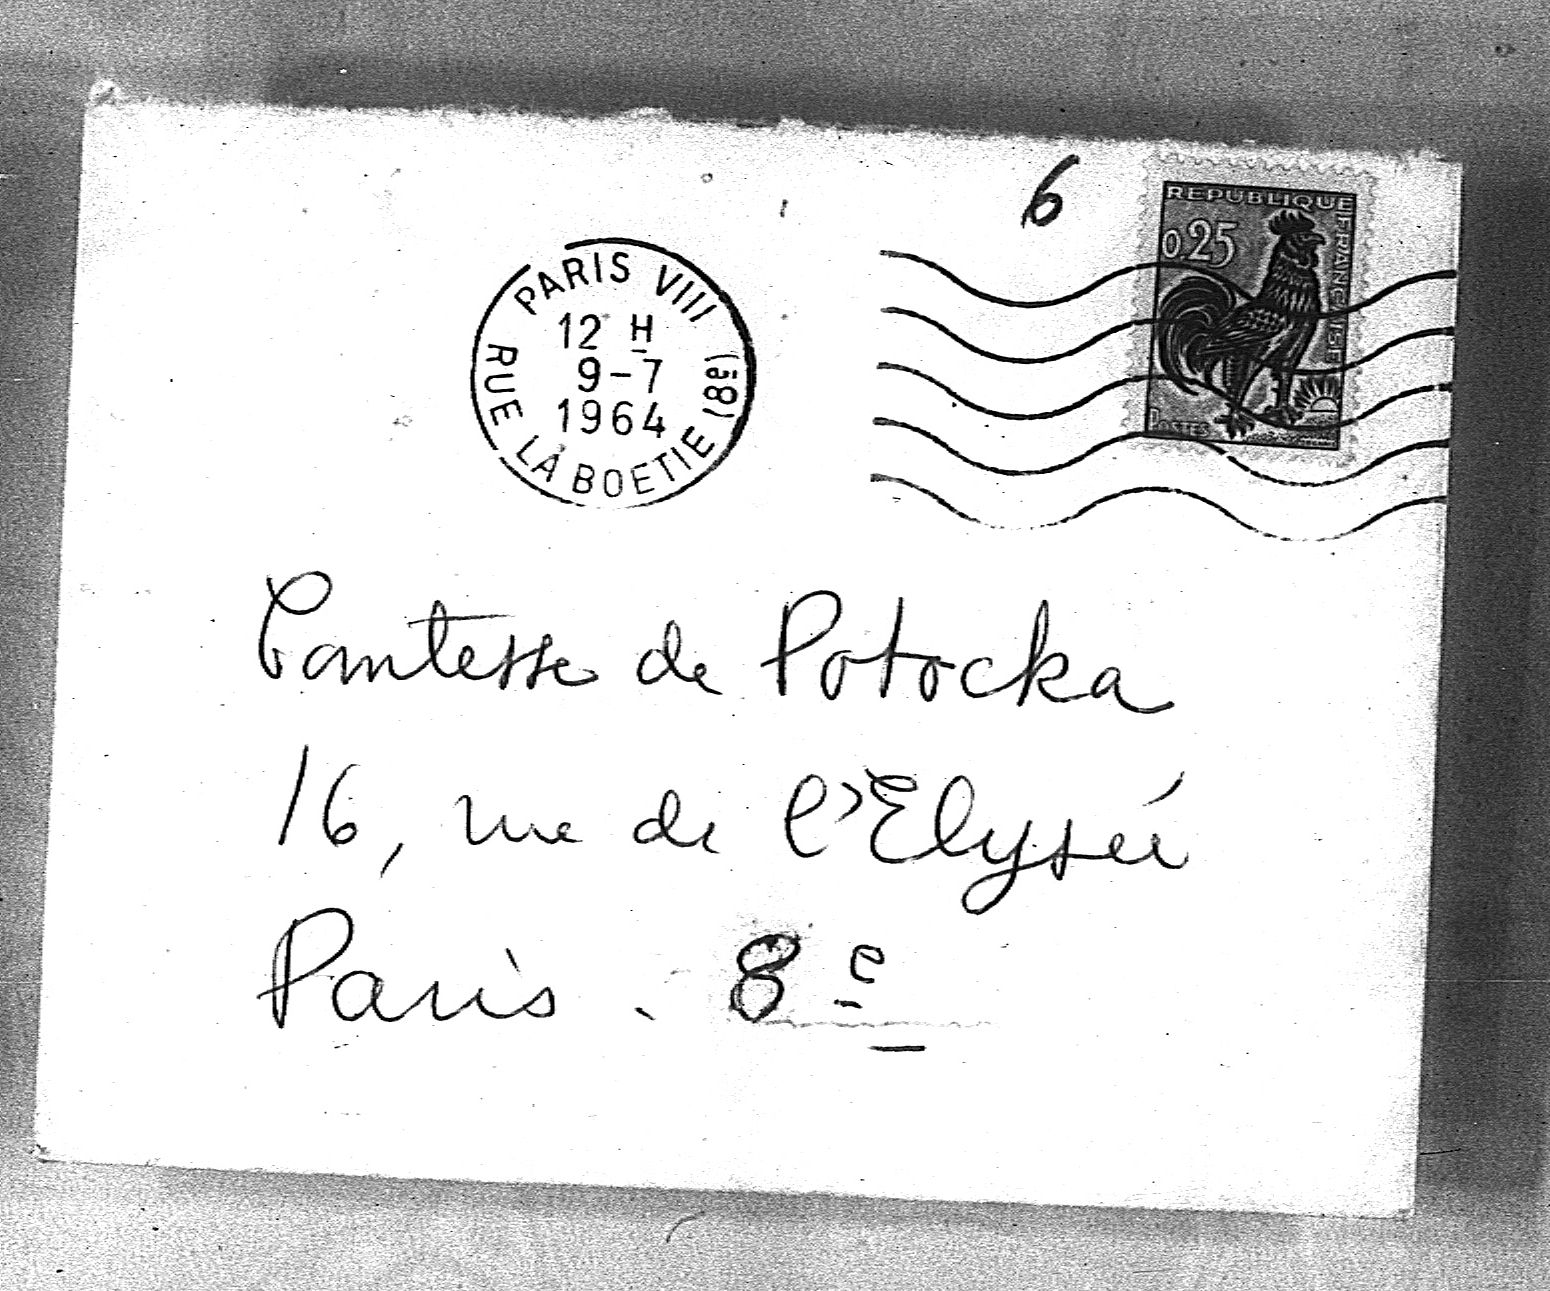 6
REPUBLIQUE FRANCAISE
0,25
POSTES
PARIS VIII
12 H
9-7
1964
RUE LA BOETIE (8E)
Comtesse de Potocka
16, rue de l'Elysée
Paris. 8e